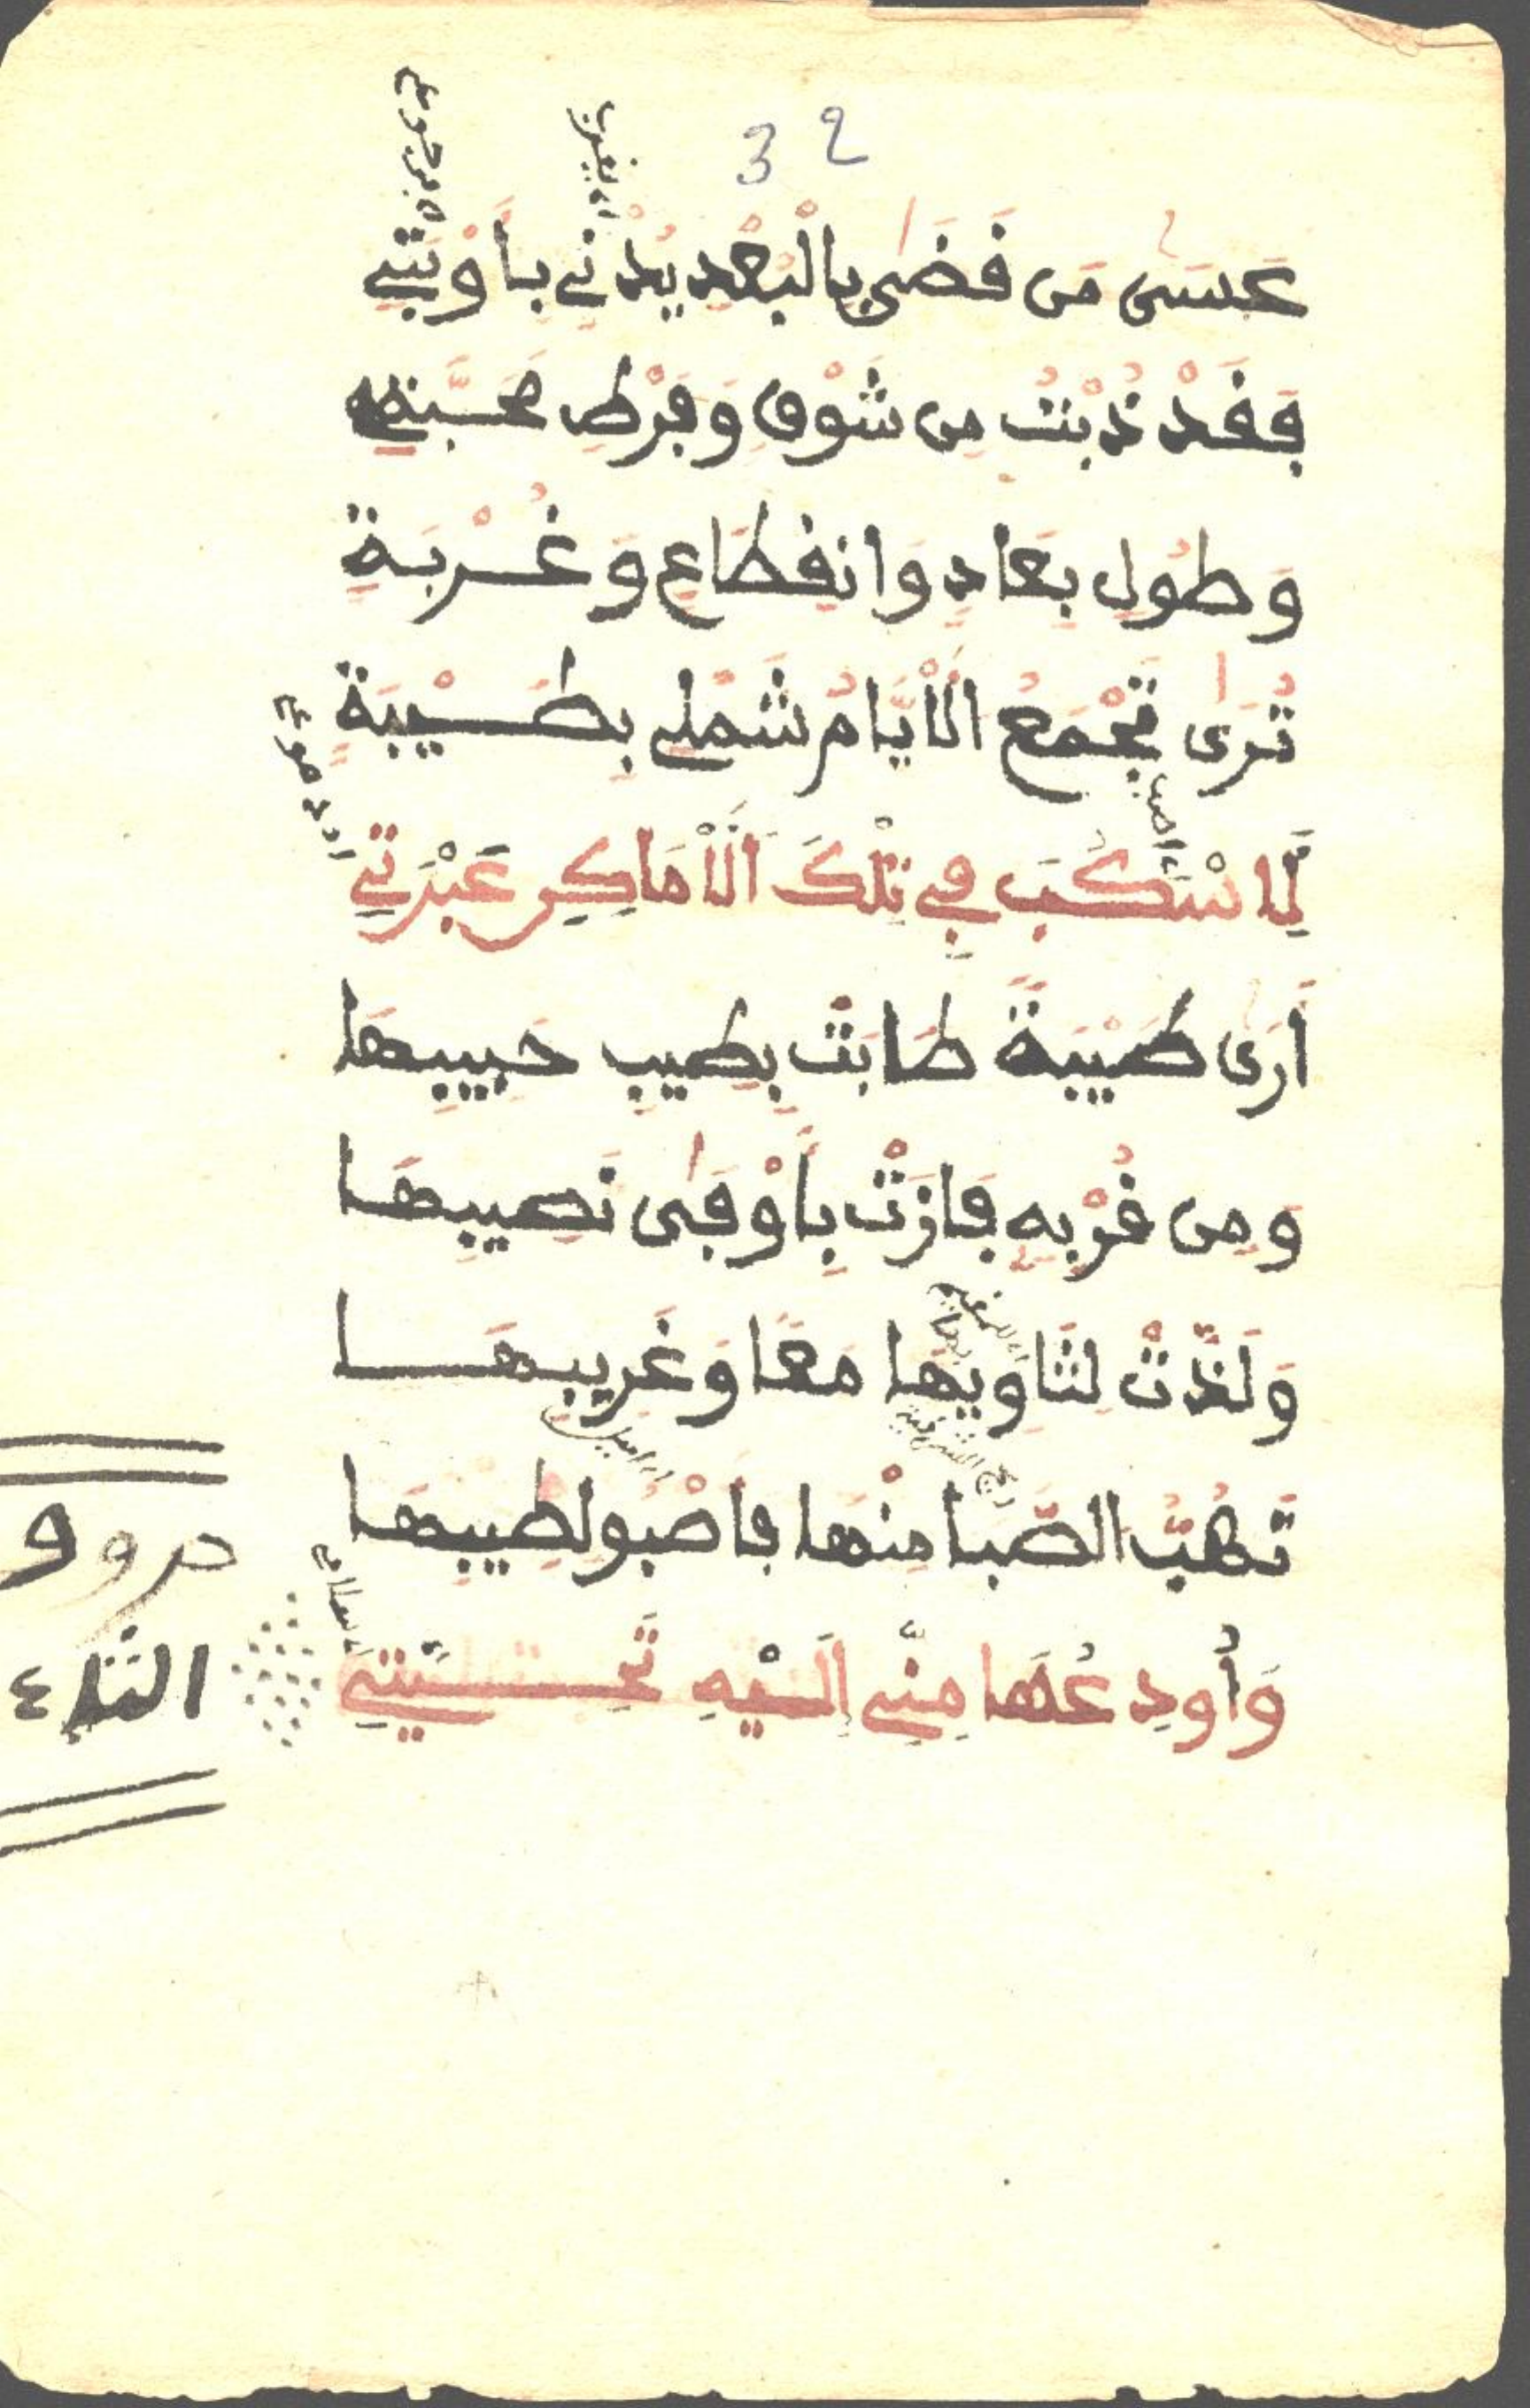 32
عَسَى مَن قَضَى بِالْبُعْدِ يُدْنِي بِأَوْبَتِي
فَقَدْ ذُبْتُ مِن شَوْقٍ وَفَرْطِ مَحَبَّتِي
وَطُولِ بِعَادٍ وَانقِطَاعٍ وَغُرْبَةٍ
تُرَى تَجْمَعُ الْأَيَّامُ شَمْلِي بِطَيْبَةٍ
لِأَسْكُبَ فِي تِلْكَ الْأَمَاكِنِ عَبْرَتِي
أَرَى طَيْبَةً طَابَتْ بِطِيبِ حَبِيبِهَا
وَمِن قُرْبِهِ فَازَتْ بِأَوْفَى نَصِيبِهَا
وَلَذَّتْ لِثَاوِيهَا مَعًا وَغَرِيبِهَا
تَهُبُّ الصَّبَا مِنْهَا فَأَصْبُو لِطِيبِهَا
وَأُودِعُهَا مِنِّي إِلَيْهِ تَحِيَّتِي
حروف
الثاء